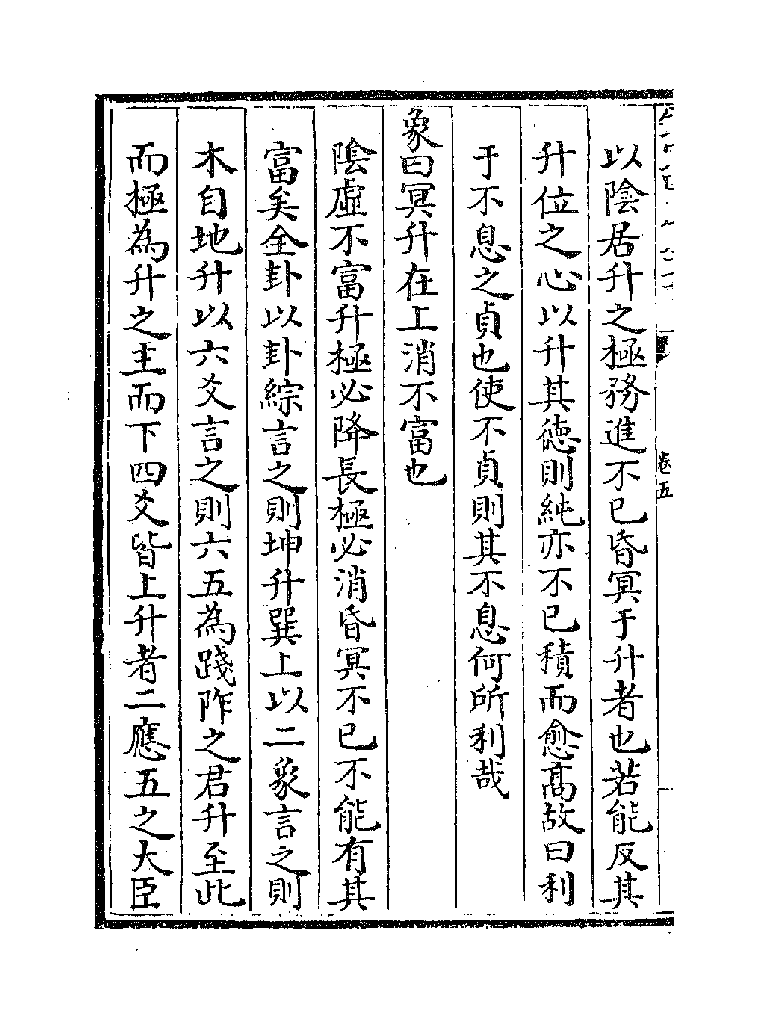 卷五
以陰居升之極務進不已昏冥于升者也若能反其
升位之心以升其德則純亦不已積而愈高故曰利
于不息之貞也使不貞則其不息何所利哉
象曰冥升在上消不富也
陰虛不富升極必降長極必消昏冥不已不能有其
富矣全卦以卦綜言之則坤升巽上以二象言之則
木自地升以六爻言之則六五為踐阼之君升至此
而極為升之主而下四爻皆上升者二應五之大臣